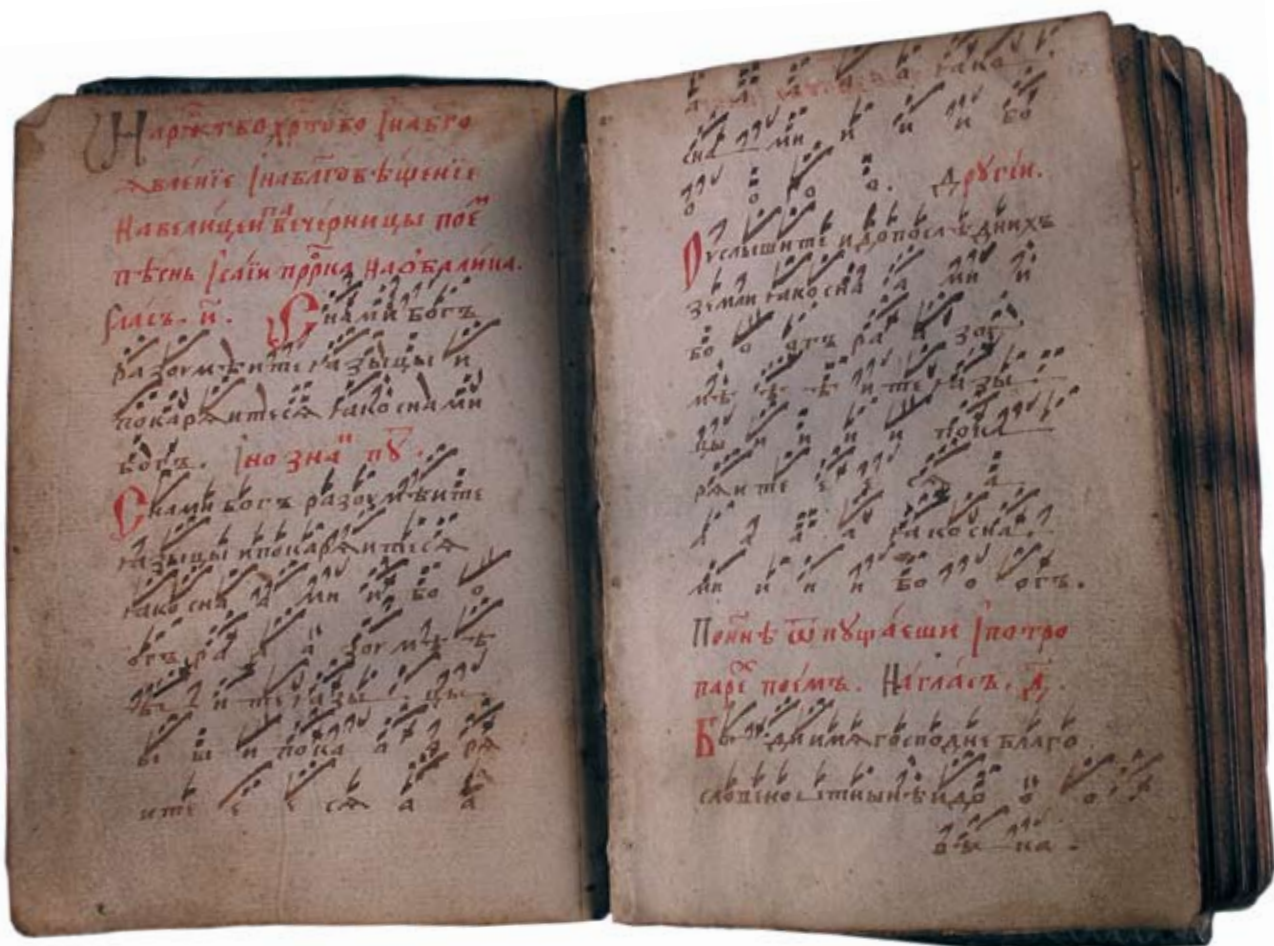 На рж҃тво хр҃тово І на бг҃о
ѧвленїе І на бл҃говѣщенїе
На велицеи павечерницы пое҃м
пѣснь Ісаїи прⷪ҇рка На ѻба лика.
гласъ. и҃. С нами богъ
разоумѣите ꙗзыцы и
покарѧитесѧ ꙗко с нами
богъ. Іно зна҃м пѹ҃.
С нами богъ разоумѣите
ꙗзыцы и покарѧитесѧ
ꙗко сна а ми и бо о
огъ ра а а зоумѣ ѣ
ѣ ите ꙗзы цы
ы ы и пока а а рѧ
ите е е сѧ а а
а а а а ꙗко
сна ми и и и бо
о о о о. Дрѹгїи.
Оуслышите и до послѣднихъ
земли ꙗко сна а ми и
бо о огъ ра а зоу
мѣ ѣ ѣ ите ꙗзы
цы и и и пока
рѧите е е
а а а ꙗко сна
ми и и и бо о о огъ.
По нн҃ѣ ѿпѹщаеши І по тро
паре҃х поемъ. На гласъ. д҃.
Бы ди имѧ господне благо
словено ѿ ны нѣ и до о о
вѣ ка.